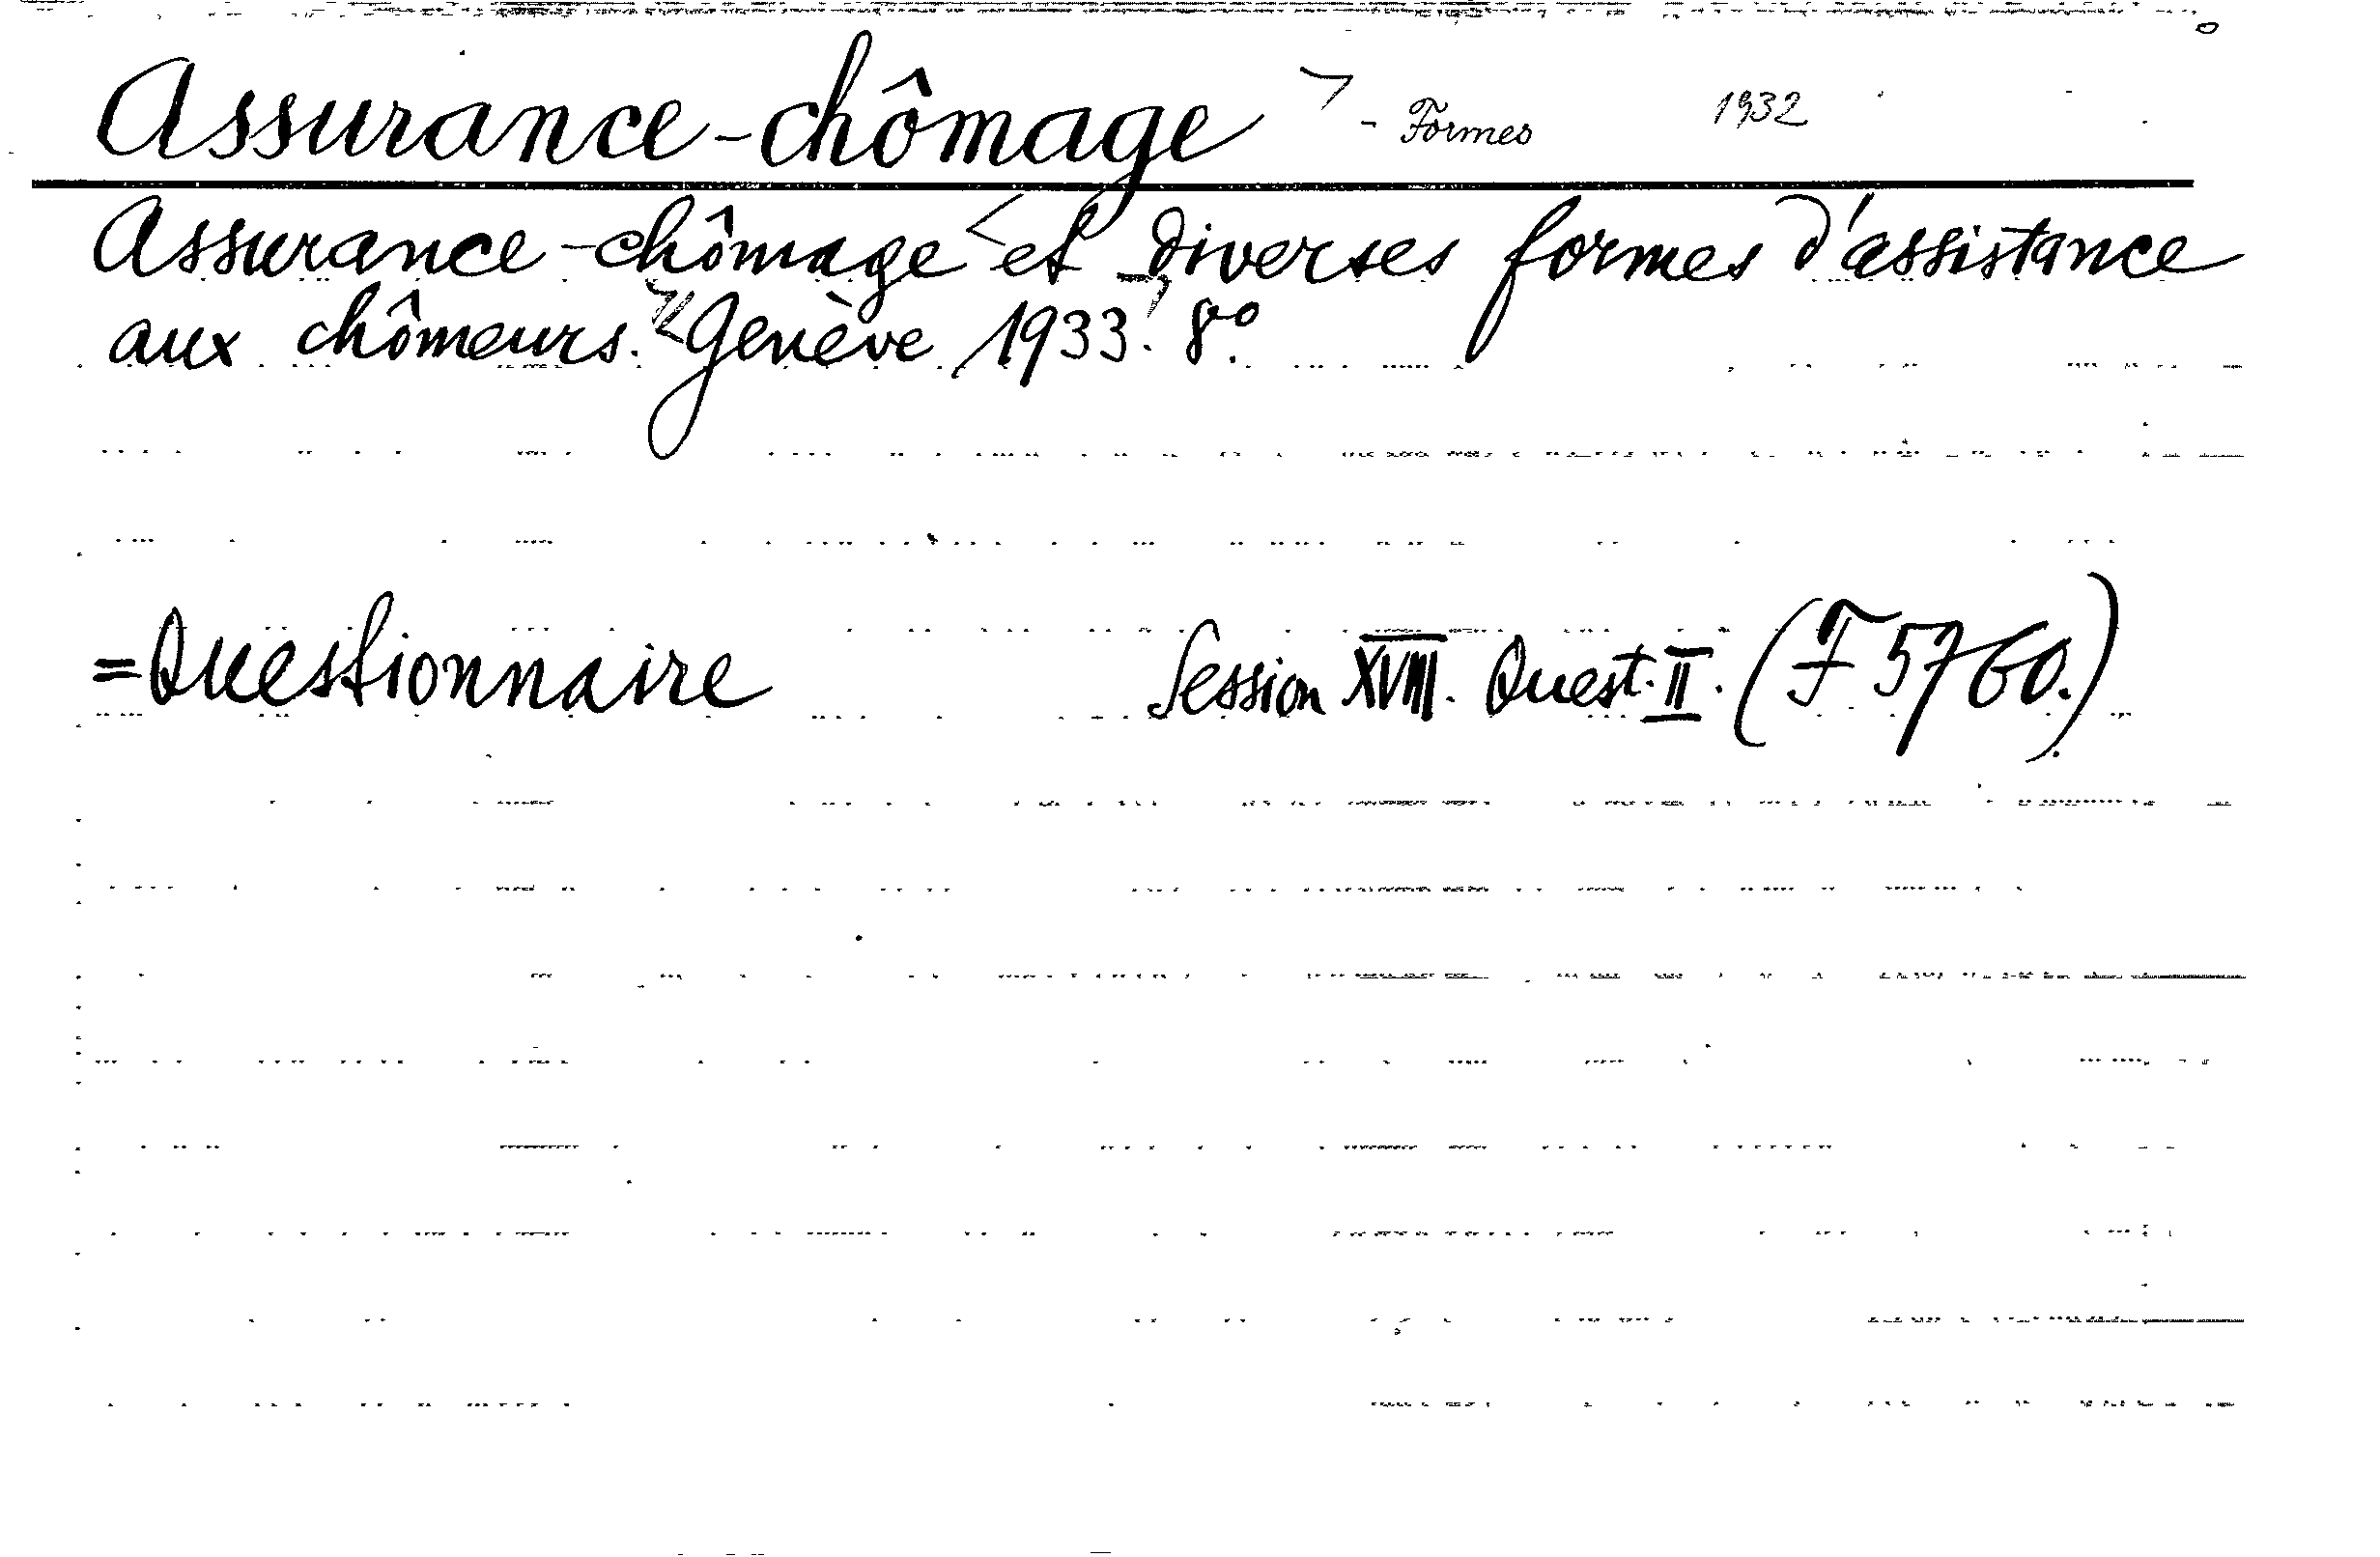 Assurance-chômage - Formes 1932
Assurance-chômage et diverses formes d'assistance
aux chômeurs. Genève 1933. 8vo.
=Questionnaire Session XVIII. Quest. II. (F 5760.)